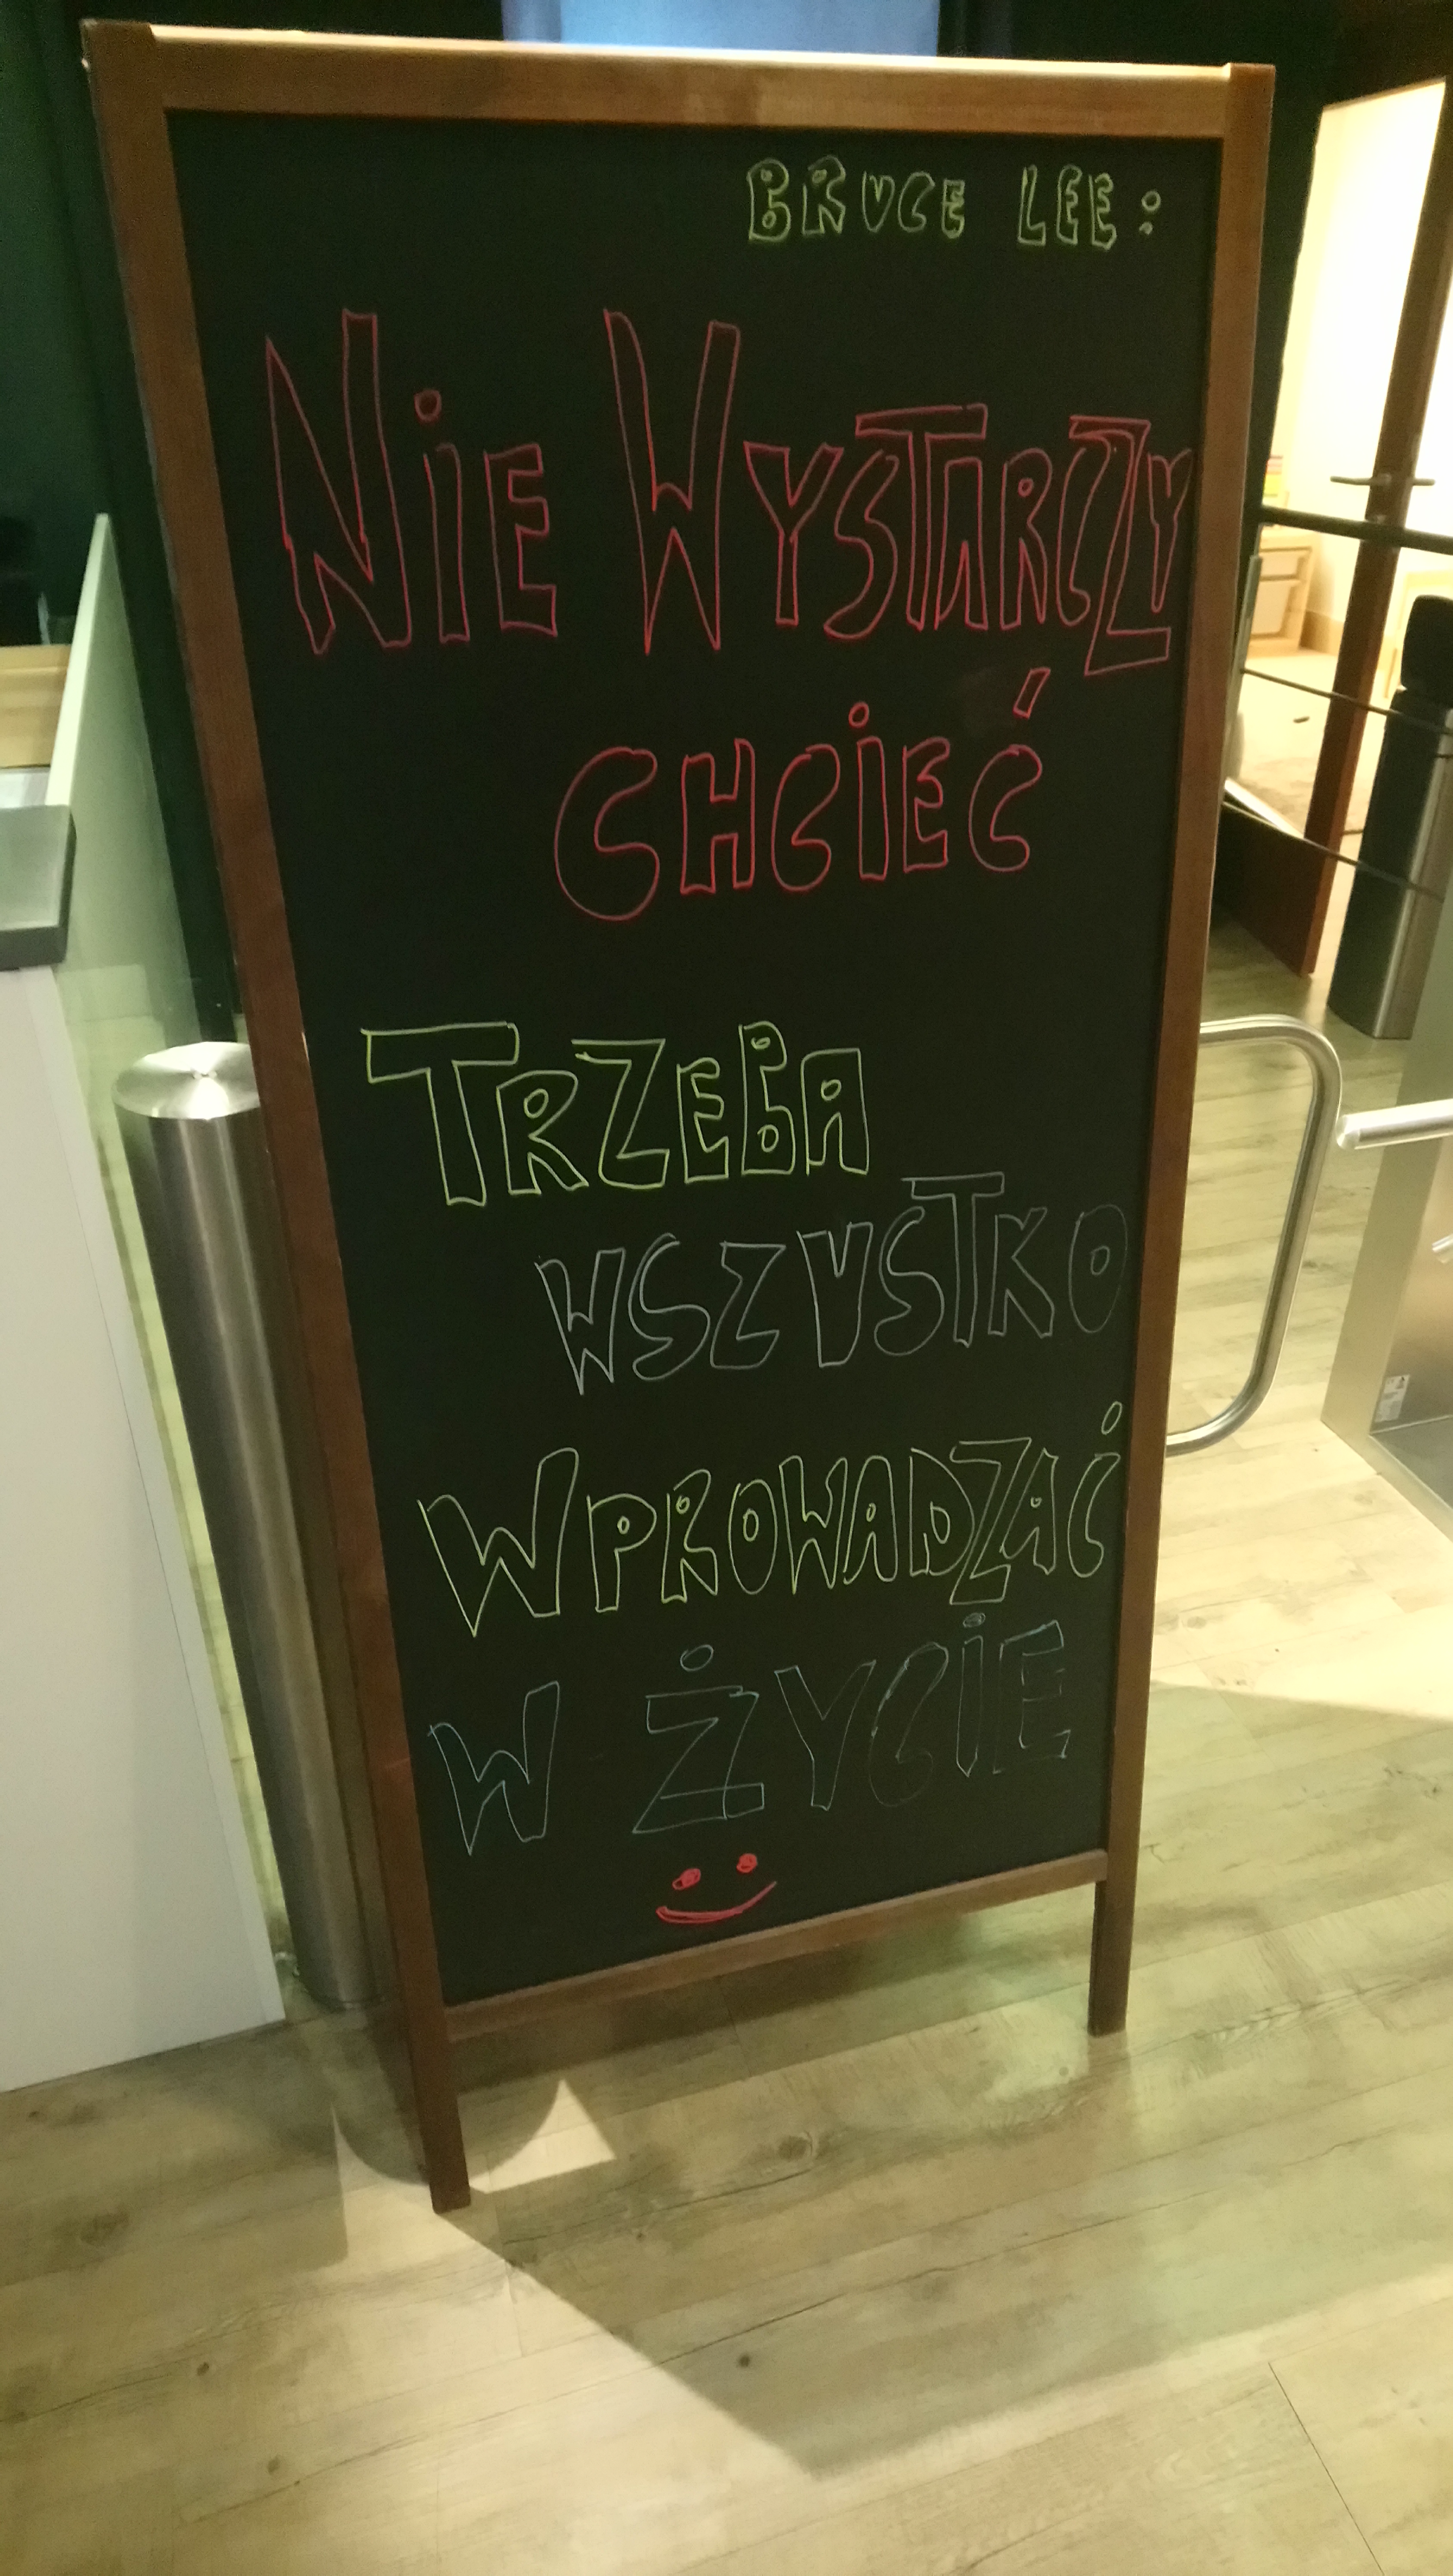 BRUCE LEE:
NiE WYSTARCZY
CHCiEĆ
TRZEBA
WSZYSTKO
WPROWADZAĆ
W ŻYCiE